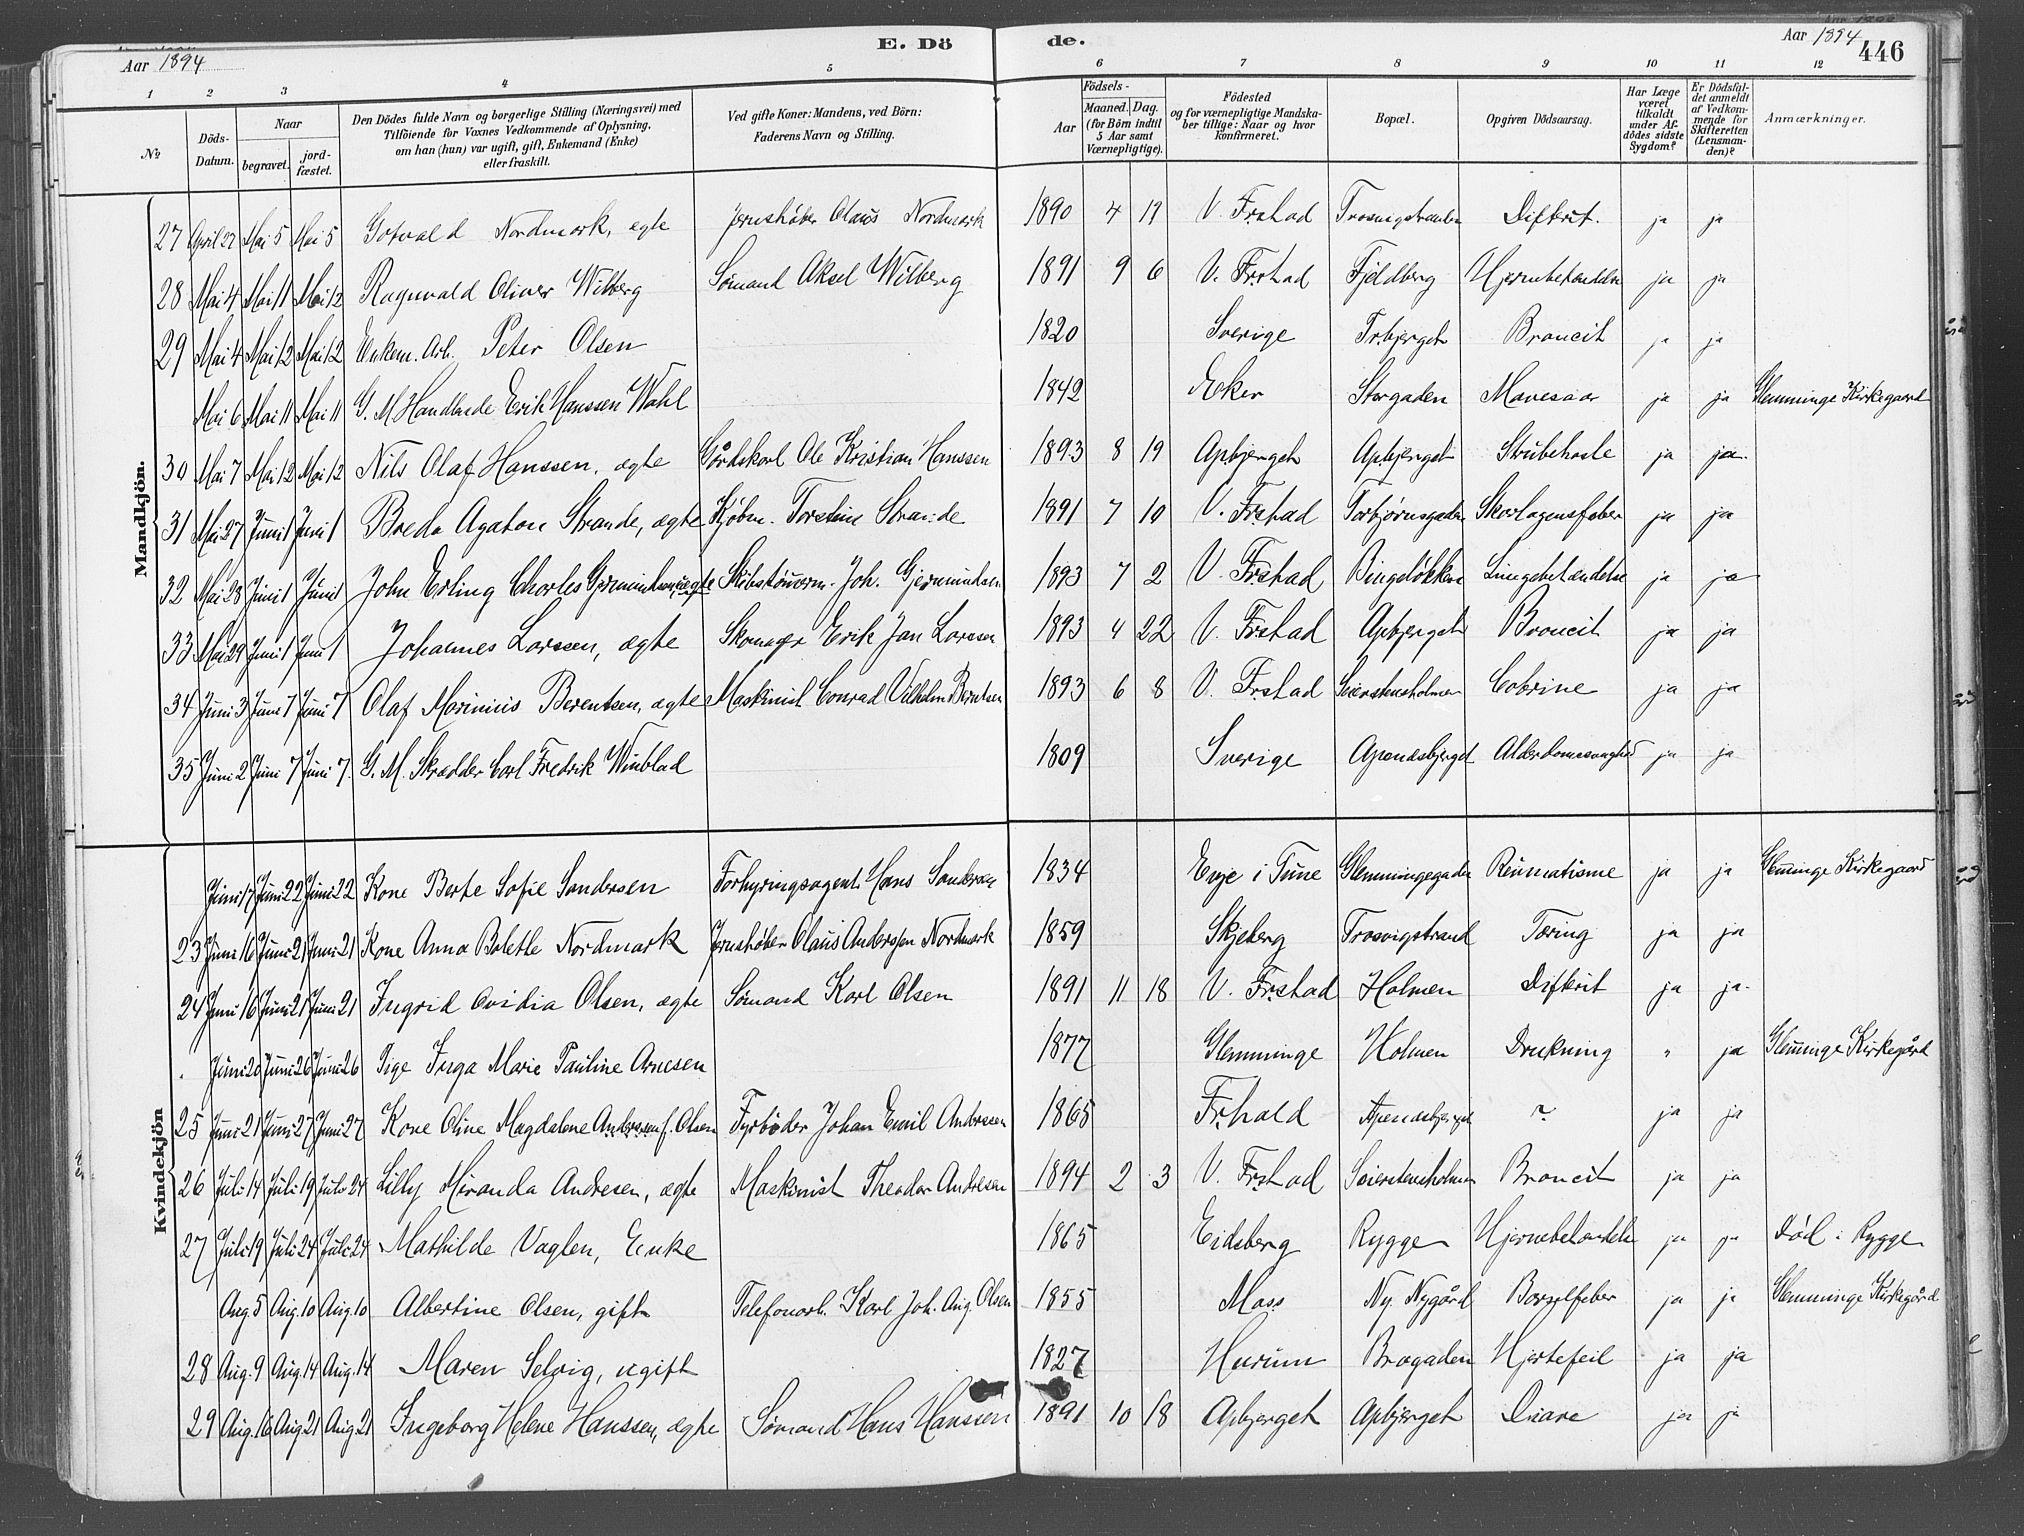 Aar 1894 E. Dö de. Aar 1894 446
1 2 3 4 5 6 7 8 9 10 11 12
No Döds-Datum. Naar begravet. jord-fæstet. Den Dödes fulde Navn og borgerlige Stilling (Næringsvei) med Tilföiende for Voxnes Vedkommende af Oplysning, om han (hun) var ugift, gift, Enkemand (Enke) eller fraskilt. Ved gifte Koner: Mandens, ved Börn: Faderens Navn og Stilling. Födsels- Aar Maaned. Dag. (for Börn indtil 5 Aar samt Værnepligtige). Födested og for værnepligtige Mandskaber tillige: Naar og hvor konfirmeret. Bopæl. Opgiven Dödsaarsag. Har Læge været tilkaldt under Afdödes sidste Sygdom? Er Dödsfaldet anmeldt af Vedkommende for Skifteretten (Lensmanden)? Anmærkninger.
Mandkjön.
27 April 27 Mai 5 Mai 5 Gotvald Nordmark, ægte Jernhøber Claus Nordmark 1890 4 19 V. Frstad Trosvigstranden Difterit. ja ja
28 Mai 4 Mai 11 Mai 12 Ragnvald Oliver Wilberg Sømand Aksel Wilberg 1891 9 6 V. Frstad Fjeldberg Hjernebetændelse ja ja
29 Mai 4 Mai 12 Mai 12 Enkem. Arb. Peter Olsen 1820 Sverige Trbjerget Broncit ja ja
Mai 6 Mai 11 Mai 11 G. M. Handlende Erik Hanssen Wahl 1842 Eker Storgaden Mavesaar ja ja Glemminge Kirkegaard
30 Mai 7 Mai 12 Mai 12 Nils Olaf Hanssen, ægte Gårdskarl Ole Kristian Hanssen 1893 8 19 Apbjerget Apbjerget Strubehoste ja ja
31 Mai 27 Juni 1 Juni 1 Breda Agaton Strande, ægte Kjøbm. Torstein Strande 1891 7 10 V. Frstad Torbjørnsgaden Skarlagensfeber ja ja
32 Mai 28 Juni 1 Juni 1 John Erling Charles Germundsen, ægte Skibstømerm. Joh. Gjermundsen 1893 7 2 V. Frstad Bingeløkken Lungebetændelse ja ja
33 Mai 29 Juni 1 Juni 1 Johannes Larssen, ægte Skomager Erik Jan Larssen 1893 4 22 V. Frstad Apbjerget Broncit ja ja
34 Juni 3 Juni 7 Juni 7 Olaf Marinius Berentsen, ægte Maskinist Conrad Vilhelm Berntsen 1893 6 8 V. Frstad Seierstensholmen Cobrine ja ja
35 Juni 2 Juni 7 Juni 7 G. M. Skrædder Carl Fredrik Winblad 1809 Sverige Apenesbjerget Alderdomssvaghed ja ja
Kvindekjön
Juni 17 Juni 22 Juni 22 Kone Berte Sofie Sandersen Forhyringsagent Hans Sandersen 1834 Enge i Tune Glemmingegaden Reumatisme ja ja Glemminge Kirkegaard
23 Juni 16 Juni 21 Juni 21 Kone Anna Bolette Nordmark Jernhøber Claus Anderssen Nordmark 1859 Skjeberg Trosvigstrand Tæring ja ja
24 Juni 16 Juni 21 Juni 21 Ingrid Ovidia Olsen, ægte Sømand Karl Olsen 1891 11 18 V. Frstad Holmen Difterit ja ja
Juni 20 Juni 26 Juni 26 Pige Inga Marie Pauline Arnesen 1877 Glemminge Holmen Drukning " ja Glemminge Kirkegård
25 Juni 21 Juni 27 Juni 27 Kone Oline Magdalene Andersen f. Olsen Fyrbøder Johan Emil Andresen 1865 Frhald Apenesbjerget ? ja ja
26 Juli 14 Juli 19 Juli 24 Lilly Miranda Andresen, ægte Maskinist Theodor Andresen 1894 2 3 V. Frstad Seierstensholmen Broncit ja ja
27 Juli 19 Juli 24 Juli 24 Mathilde Vaglen, Enke 1865 Eidsberg Rygge Hjernebetændelse ja ja død i Rygge
Aug. 5 Aug. 10 Aug. 10 Albertine Olsen, gift Telefonarb. Karl Joh. Aug. Olsen 1855 Moss Ny. Nygård Barselfeber ja ja Glemminge Kirkegård
28 Aug. 9 Aug. 14 Aug. 14 Maren Selvig, ugift 1827 Hurum Brogaden Hjertefeil ja ja
29 Aug. 16 Aug. 21 Aug. 21 Ingeborg Helene Hanssen, ægte Sømand Hans Hanssen 1891 10 18 Apbjerget Apbjerget Diare ja ja